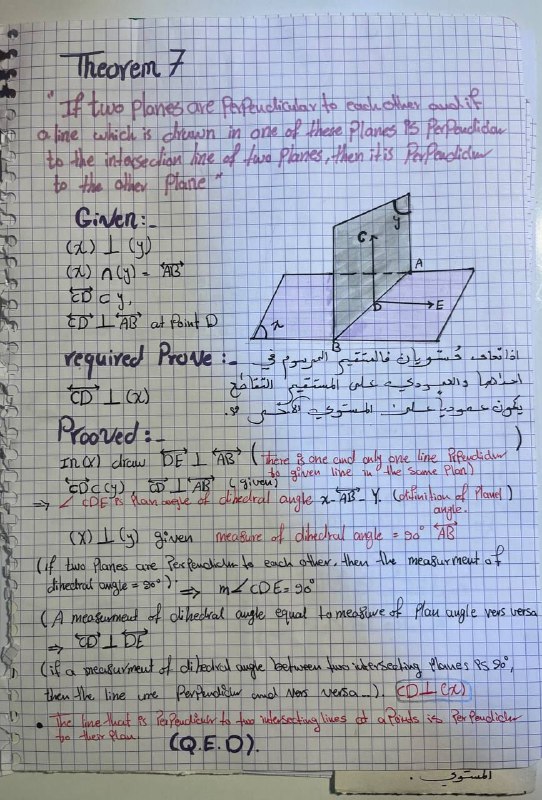 Theorem 7
"If two planes are Perpendicular to each other and if
a line which is drawn in one of these Planes is Perpendicular
to the intersection line of two Planes, then it is Perpendicular
to the other Plane"
Given:-
(x) ⊥ (y)
(x) ∩ (y) = AB
CD ⊂ y,
CD ⊥ AB at Point D
C
y
A
D
E
x
B
required Prove :-
CD ⊥ (x)
اذا تعامد مستويان فالمستقيم المرسوم في
احدهما والعمودي على المستقيم التقاطع
يكون عمودياً على المستوي الآخر
Prooved:-
In (x) draw DE ⊥ AB (There is one and only one line Perpendicular
to given line in the same Plan)
CD ⊂ (y) CD ⊥ AB (given)
⇒ ∠ CDE is Plan angle of dihedral angle x-AB-Y. (definition of Planel
angle.)
(X) ⊥ (y) given measure of dihedral angle = 90° AB
(if two Planes are Perpendicular to each other, then the measurment of
dihedral angle = 90°) ⇒ m∠CDE = 90°
(A measurment of dihedral angle equal to measure of Plan angle vers versa
⇒ CD ⊥ DE
(if a measurment of dihedral angle between two intersecting planes is 90°,
then the line are Perpendicular and vers versa...). CD ⊥ (x)
• The line that is Perpendicular to two intersecting lines at a Points is Perpendicular
to their Plan.
(Q.E.D).
المستوي .